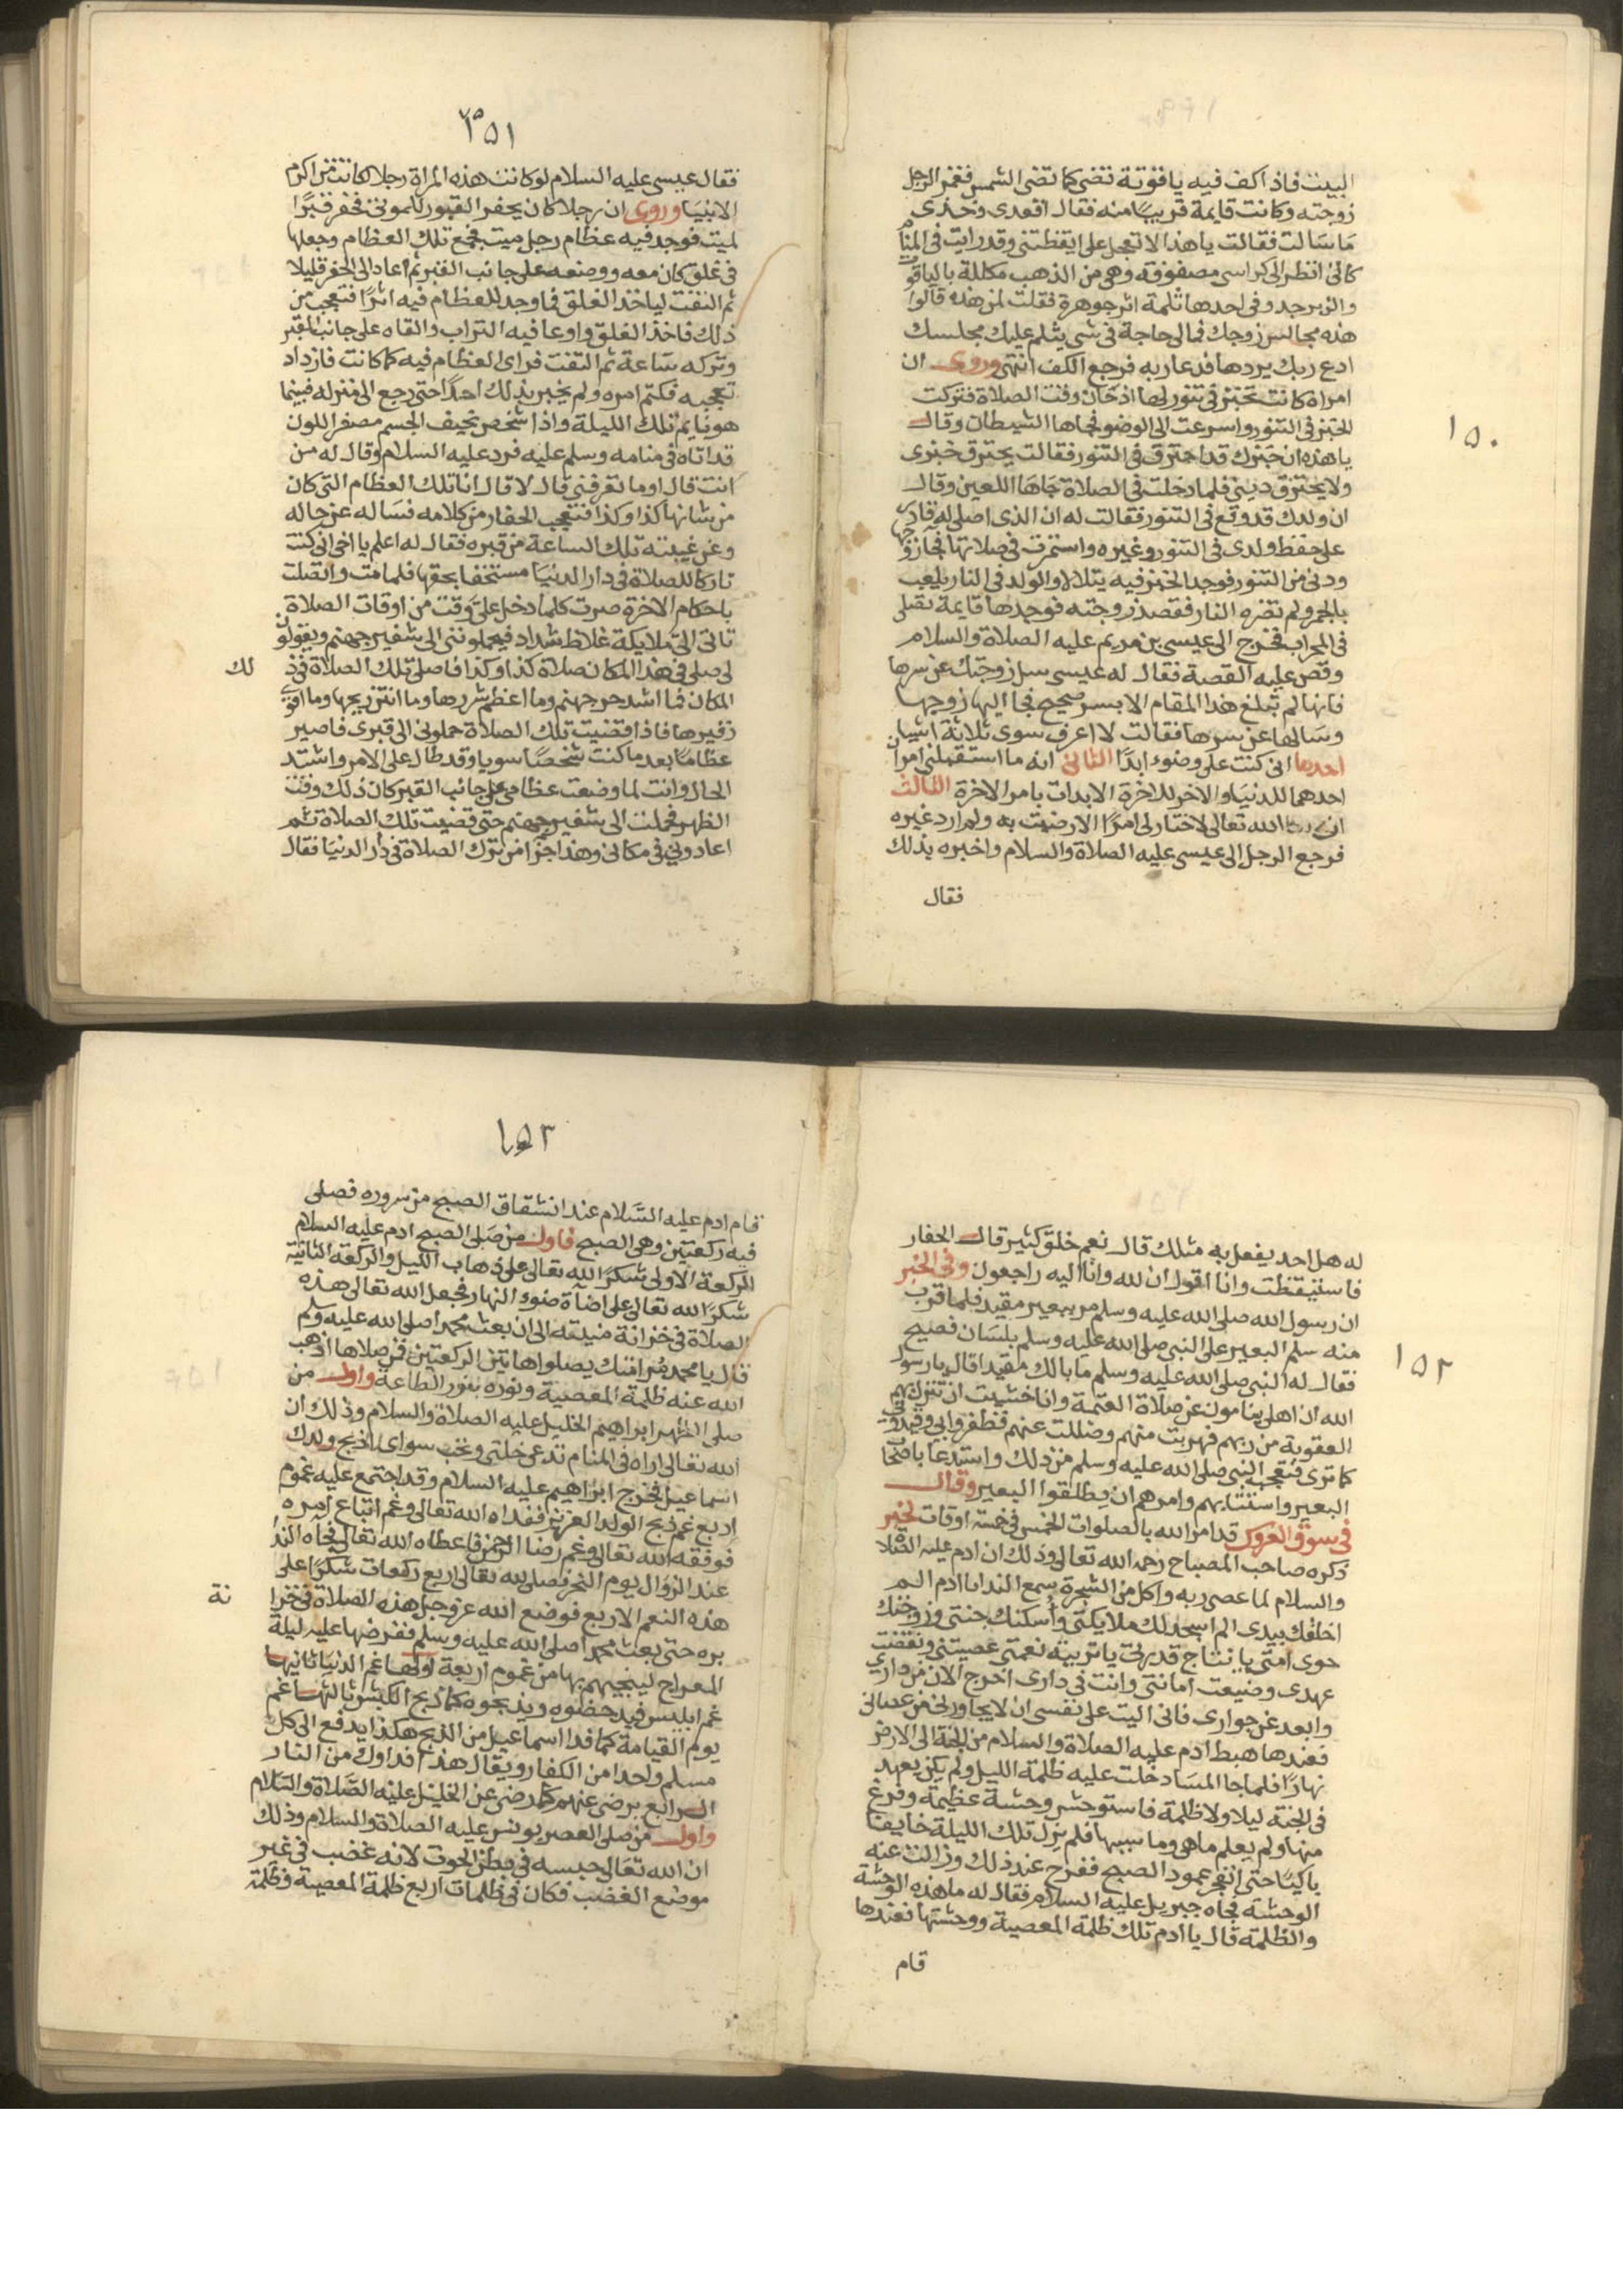 ١٥٠
البيت فاذا كف فيه ياقوتة تضى كما تضى الشمس فغمز الرجل
زوجته وكانت قايمة قريبًا منه فقال اقعدى وخذى
مَا سَالت فقالت يا هذا لا تعجل على ايقظتنى وقد رايت فى المنام
كانى انظر الى كراسى مصفوفة وهى من الذهب مكللة بالياقوت
والزبرجد وفى احدها ثلمة اثر جوهرة فقلت لمن هذه قالوا
هذه مجالس زوجك فمالى حاجة فى شى يثلم عليك مجلسك
ادع ربك يردها فدعا ربه فرجع الكف انتهى وروى ان
امراة كانت تخبز فى تنور لها اذ حَان وقت الصلاة فتركت
الخبز فى التنور واسرعت الى الوضو فجاها الشيطان وقال
يا هذه ان خبزك قد احترق فى التنور فقالت يحترق خبزى
ولا يحترق دينى فلما دخلت فى الصلاة جَاهَا اللعين وقال
ان ولدك قد وقع فى التنور فقالت له ان الذى اصلى له قادر
على حفظ ولدى فى التنور وغيره واستمرت فى صلاتها فجا زوجها
ودنى من التنور فوجد الخبز فيه يتلالا والولد فى النار يلعب
بالجمر ولم تضره النار فقصد زوجته فوجدها قايمة تصلى
فى المحراب فخرج الى عيسى بن مريم عليه الصلاة والسلام
وقص عليه القصة فقال له عيسى سل زوجتك عن سرها
فانها لم تبلغ هذا المقام الا بسر صحيح فجا اليها زوجها
وسَالها عن سرها فقالت لا اعرف سوى ثلاثة اشيا
احدها انى كنت على وضوء ابدًا الثانى انه ما استقبلنى امران
احدهما للدنيَا والاخر للاخرة الا بدات بامر الاخرة الثالث
ان الله تعالى لا ختار لى امرًا الا رضيت به ولم ارد غيره
فرجع الرجل الى عيسى عليه الصلاة والسلام واخبره بذلك
فقال
١٥١
فقال عيسى عليه السلام لو كانت هذه المراة رجلا لكانت من اكرم
الانبيَا وروى ان رجلا كان يحفر القبور للموتى فحفر قبرًا
لميت فوجد فيه عظام رجل ميت فجمع تلك العظام وجعلها
فى غلق كان معه ووضعه على جانب القبر ثم اعاد الى الحفر قليلا
ثم التفت لياخذ الغلق فما وجد للعظام فيه اثرًا فتعجب من
ذلك فاخذ الغلق واوعا فيه التراب والقاه على جانب القبر
وتركه سَاعة ثم التفت فراى العظام فيه كما كانت فازداد
تعجبه فكتم امره ولم يخبر بذلك احدًا حتى رجع الى منزله فبينما
هو نايم تلك الليلة واذا شخص نحيف الجسم مصفر اللون
قد اتاه فى منامه وسلم عليه فرد عليه السلام وقال له من
انت قال اوما تعرفنى قال لا قال انا تلك العظام التى كان
من شانها كذا وكذا فتعجب الحفار من كلامه فسَاله عن حاله
وعن غيبته تلك الساعة من قبره فقال له اعلم يا اخى انى كنت
تاركا للصلاة فى دار الدنيَا مستخفا بحقها فلما مت واتصلت
باحكام الاخرة صرت كلما دخل على وَقت من اوقات الصلاة
تاتى الى ملايكة غلاظ شداد فيحملوننى الى شفير جهنم ويقولون
لى صلى فى هذا المكان صلاة كذا وكذا فاصلى تلك الصلاة فى ذ لك
المكان فما اشد حر جهنم وما اعظم شررها وما انتن ريحها وما اقوى
زفيرها فاذا قضيت تلك الصلاة حملونى الى قبرى فاصير
عظامًا بعد ما كنت شخصًا سويا وقد طال على الامر واشتد
الحال وانت لما وضعت عظامى على جانب القبر كان ذلك وقت
الظهر فحملت الى شفير جهنم حتى قضيت تلك الصلاة ثم
اعادونى فى مكانى وهذا جزا من ترك الصلاة فى دار الدنيَا فقال
١٥٢
له هل احد يفعل به مثلك قال نعم خلق كثير قال الحفار
فاستيقظت وانا اقول ان لله وانا اليه راجعون وفى الخبر
ان رسول الله صلى الله عليه وسلم مر ببعير مقيد فلما قرب
منه سلم البعير على النبى صلى الله عليه وسلم بلسَان فصيح
فقال له النبى صلى الله عليه وسلم ما بالك مقيدا قال يا رسول
الله ان اهلى ينامون عن صلاة العتمة وانا خشيت ان تنزل بهم
العقوبة من ربهم فهربت منهم وضللت عنهم فظفروا بى وقيدونى
كما ترى فتعجب النبى صلى الله عليه وسلم من ذلك واستدعا باصحاب
البعير واستتابهم وامرهم ان يطلقوا البعير وقال
فى سوق العروس قد امر الله بالصلوات الخمس فى خمسة اوقات لخبر
ذكره صاحب المصباح رحمه الله تعالى وذلك ان ادم عليه الصلاة
والسلام لما عصى ربه واكل من الشجرة سمع الندا يا ادم الم
اخلقك بيدى الم اسجد لك ملايكتى وأسكنك جنتى وزوجتك
حوى امتى يا نتاج قدرتى يا تربية نعمتى عصيتنى ونقضت
عهدى وضيعت امانتى وانت فى دارى اخرج الان من دارى
وابعد عن جوارى فانى اليت على نفسى ان لا يجاورنى من عصانى
فعندها هبط ادم عليه الصلاة والسلام من الجنة الى الارض
نهارًا فلما جا المسَا دخلت عليه ظلمة الليل ولم يكن يعهد
فى الجنة ليلا ولا ظلمة فاستوحش وحشة عظيمة وفزع
منها ولم يعلم ما هى وما سببها فلم يزل تلك الليلة خايفا
باكيًا حتى انفجر عمود الصبح ففرح عند ذلك وزالت عنه
الوحشة فجاه جبريل عليه السلام فقال له ما هذه الوحشة
والظلمة قال يا ادم تلك ظلمة المعصية ووحشتها فعندها
قام
١٥٣
قام ادم عليه السَّلام عند انشقاق الصبح من سروره فصلى
فيه ركعتين وهى الصبح فاول من صَلى الصبح ادم عليه السلام
الركعة الاولى شكرًا لله تعالى على ذهاب الليل والركعة الثانية
شكرًا لله تعالى على اضآة ضوء النهار فجعل الله تعالى هذه
الصلاة فى خزانة منيعة الى ان بعث محمدا صلى الله عليه وسلم
قال يا محمد مُر امتك يصلوا هاتين الركعتين فمن صلاها اذهب
الله عنه ظلمة المعصية ونوره بنور الطاعة واول من
صلى الظهر ابراهيم الخليل عليه الصلاة والسلام وذلك ان
الله تعالى اراه فى المنام تدعى خلتى وتحب سواى اذبح ولدك
اسماعيل فخرج ابراهيم عليه السلام وقد اجتمع عليه غموم
اربع غم ذبح الولد العزيز ففداه الله تعالى وغم اتباع امره
فوفقه الله تعالى وغم رضا الرحمن فاعطاه الله تعالى فجاه الندا
عند الزوال يوم النحر فصلى لله تعالى اربع ركعات شكرًا على
هذه النعم الاربع فوضع الله عز وجل هذه الصلاة فى خزا نة
بره حتى بعث محمدا صلى الله عليه وسلم ففرضها عليه ليلة
المعراج لينجيهم بها من غموم اربعة اولها غم الدنيَا ثانيها
غم ابليس فيدحضوه ويذبحوه كما ذبح الكبش ثالثها غم
يوم القيامة كما فدا اسماعيل من الذبح هكذا يدفع الى كل
مسلم واحدا من الكفار ويقال هذا فداوك من النار
الرابع يرضى عنهم كما رضى عن الخليل عليه الصَّلاة والسَّلام
واول من صلى العصر يونس عليه الصلاة والسلام وذلك
ان الله تعَالى حبسه فى بطن الحوت لانه غضب فى غير
موضع الغضب فكان فى ظلمات اربع ظلمة المعصية وظلمة